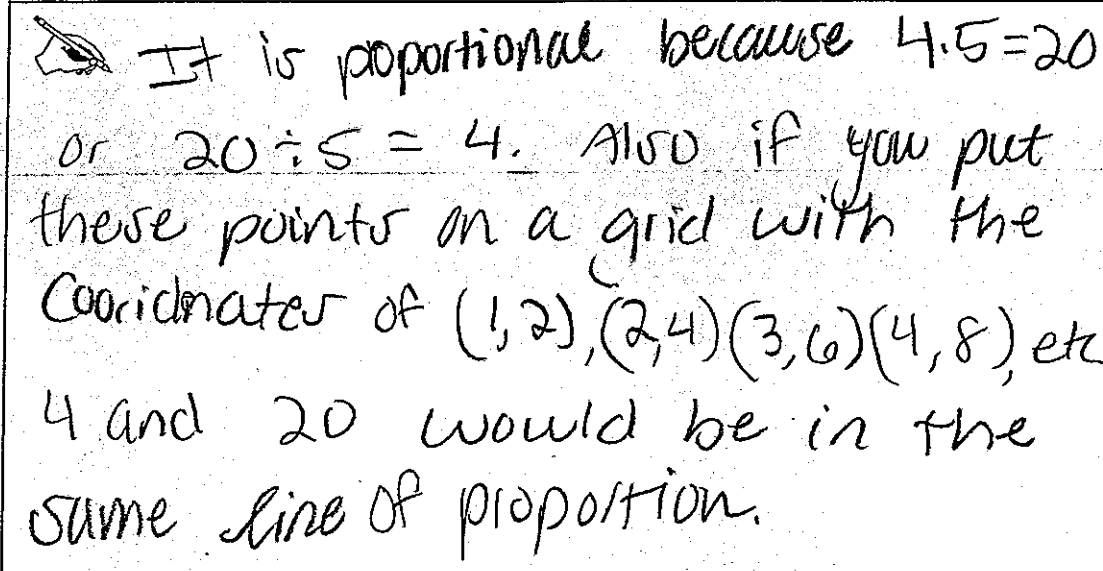 It is poportional because 4.5=20
or 20÷5 = 4. Also if you put
these points on a grid with the
Cooridnates of (1,2),(2,4)(3,6)(4,8), etc
4 and 20 would be in the
same line of proportion.